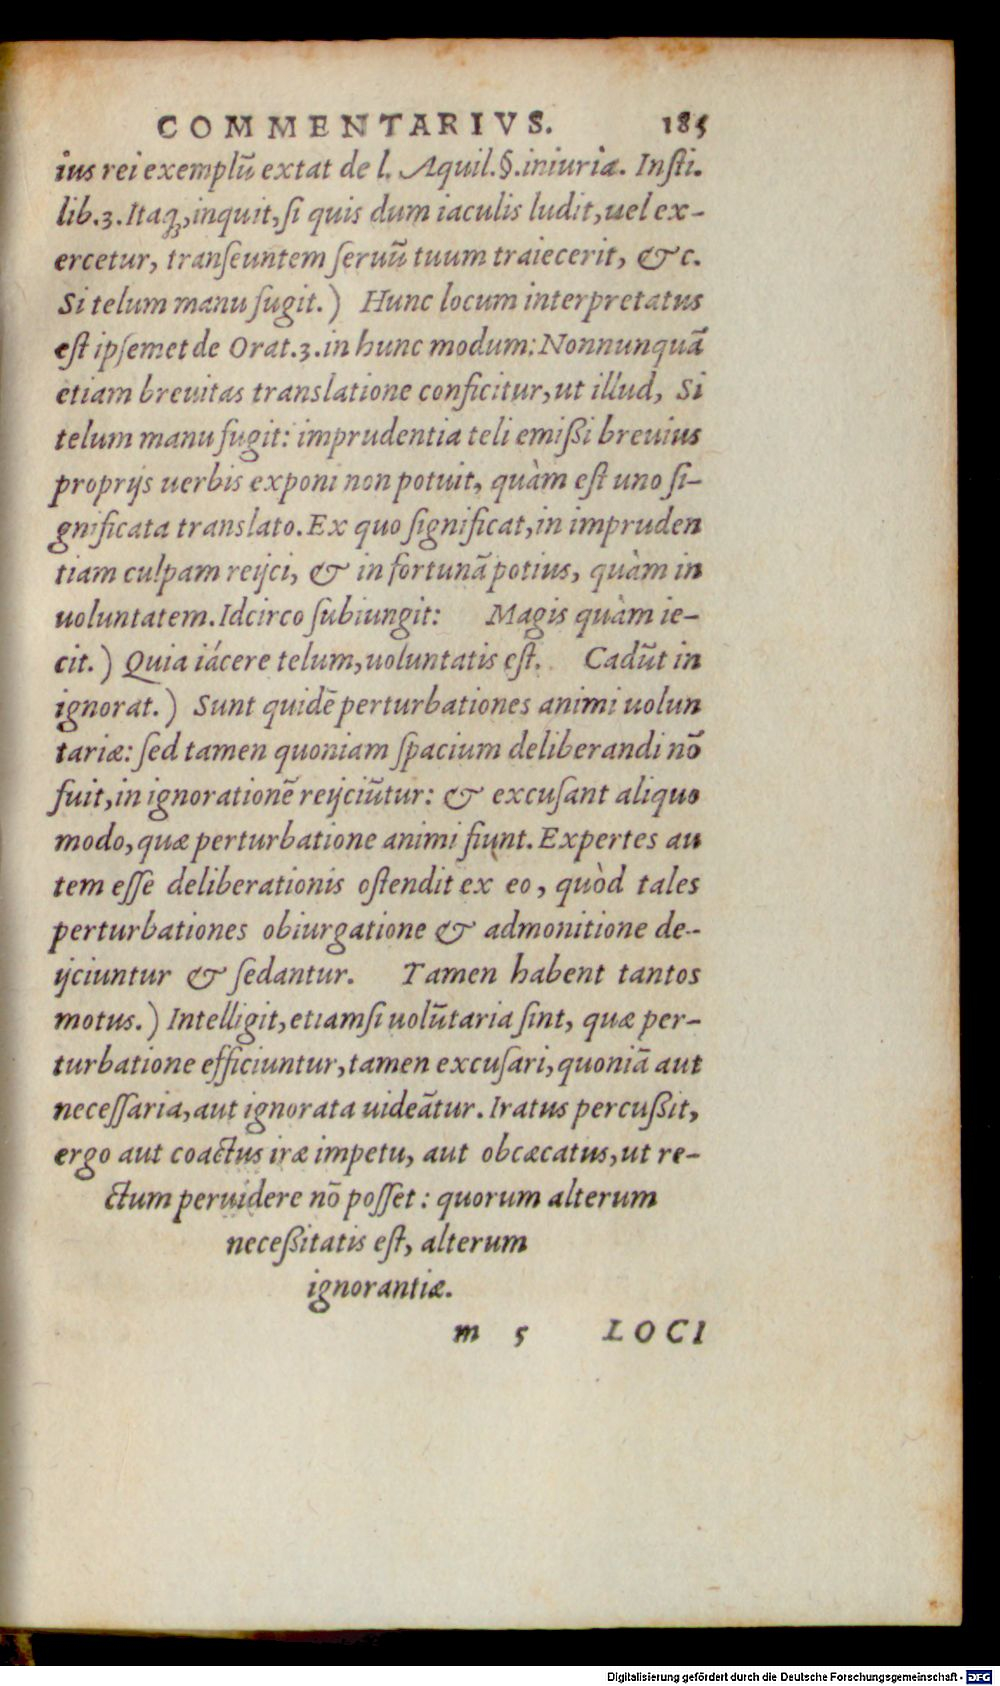 COMMENTARIVS. 185
ius rei exemplū extat de l. Aquil. §. iniuria. Insti.
lib.3. Itaq;, inquit, si quis dum iaculis ludit, uel ex-
ercetur, transeuntem seruū tuum traiecerit, & c.
Si telum manu fugit.) Hunc locum interpretatus
est ipsemet de Orat.3. in hunc modum: Nonnunquā
etiam breuitas translatione conficitur, ut illud, Si
telum manu fugit: imprudentia teli emißi breuius
proprijs uerbis exponi non potuit, quàm est uno si-
gnificata translato. Ex quo significat, in impruden
tiam culpam reijci, & in fortunā potius, quàm in
uoluntatem. Idcirco subiungit: Magis quàm ie-
cit.) Quia iácere telum, uoluntatis est. Cadūt in
ignorat.) Sunt quidē perturbationes animi uolun
tariæ: sed tamen quoniam spacium deliberandi nō
fuit, in ignorationē reijciūtur: & excusant aliquo
modo, quæ perturbatione animi fiunt. Expertes au
tem esse deliberationis ostendit ex eo, quòd tales
perturbationes obiurgatione & admonitione de-
ijciuntur & sedantur. Tamen habent tantos
motus.) Intelligit, etiamsi uolūtaria sint, quæ per-
turbatione efficiuntur, tamen excusari, quoniā aut
necessaria, aut ignorata uideātur. Iratus percußit,
ergo aut coactus iræ impetu, aut obcæcatus, ut re-
ctum peruidere nō posset: quorum alterum
neceßitatis est, alterum
ignorantiæ.
m 5 LOCI
Digitalisierung gefördert durch die Deutsche Forschungsgemeinschaft - DFG